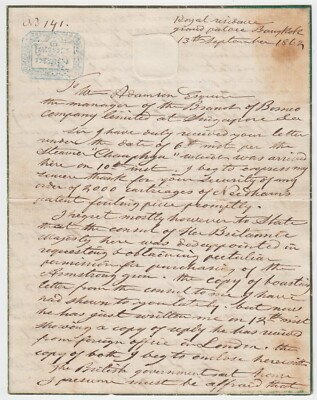 No 141.
Royal residence
grand palace Bangkok
13th September 1862
To
Wm Adamson Esquire
the manager of the Branch of Borneo
company limited at Singapore &c
Sir I have duly received your letter
under the date of 6th inst per the
Steamer "Chowphya" which was arrived
here on 10th inst. I beg to express my
sincere thank for your security of my
order of 2000 cartridges of Needham's
patent fowling piece promptly.
I regret mostly however to State
that the consul of Her Britannic
Majesty here was disappointed in
requesting & obtaining peculiar
permission for purchasing of the
Armstrong Gun the copy of
letter from the consul to me I have
had shown to you lately. but now
he has just written me on 12th inst
showing a copy of reply he has received
from foreign office in London. the
copy of both I beg to enclose herewith
The British government at home
I presume must be affraid that